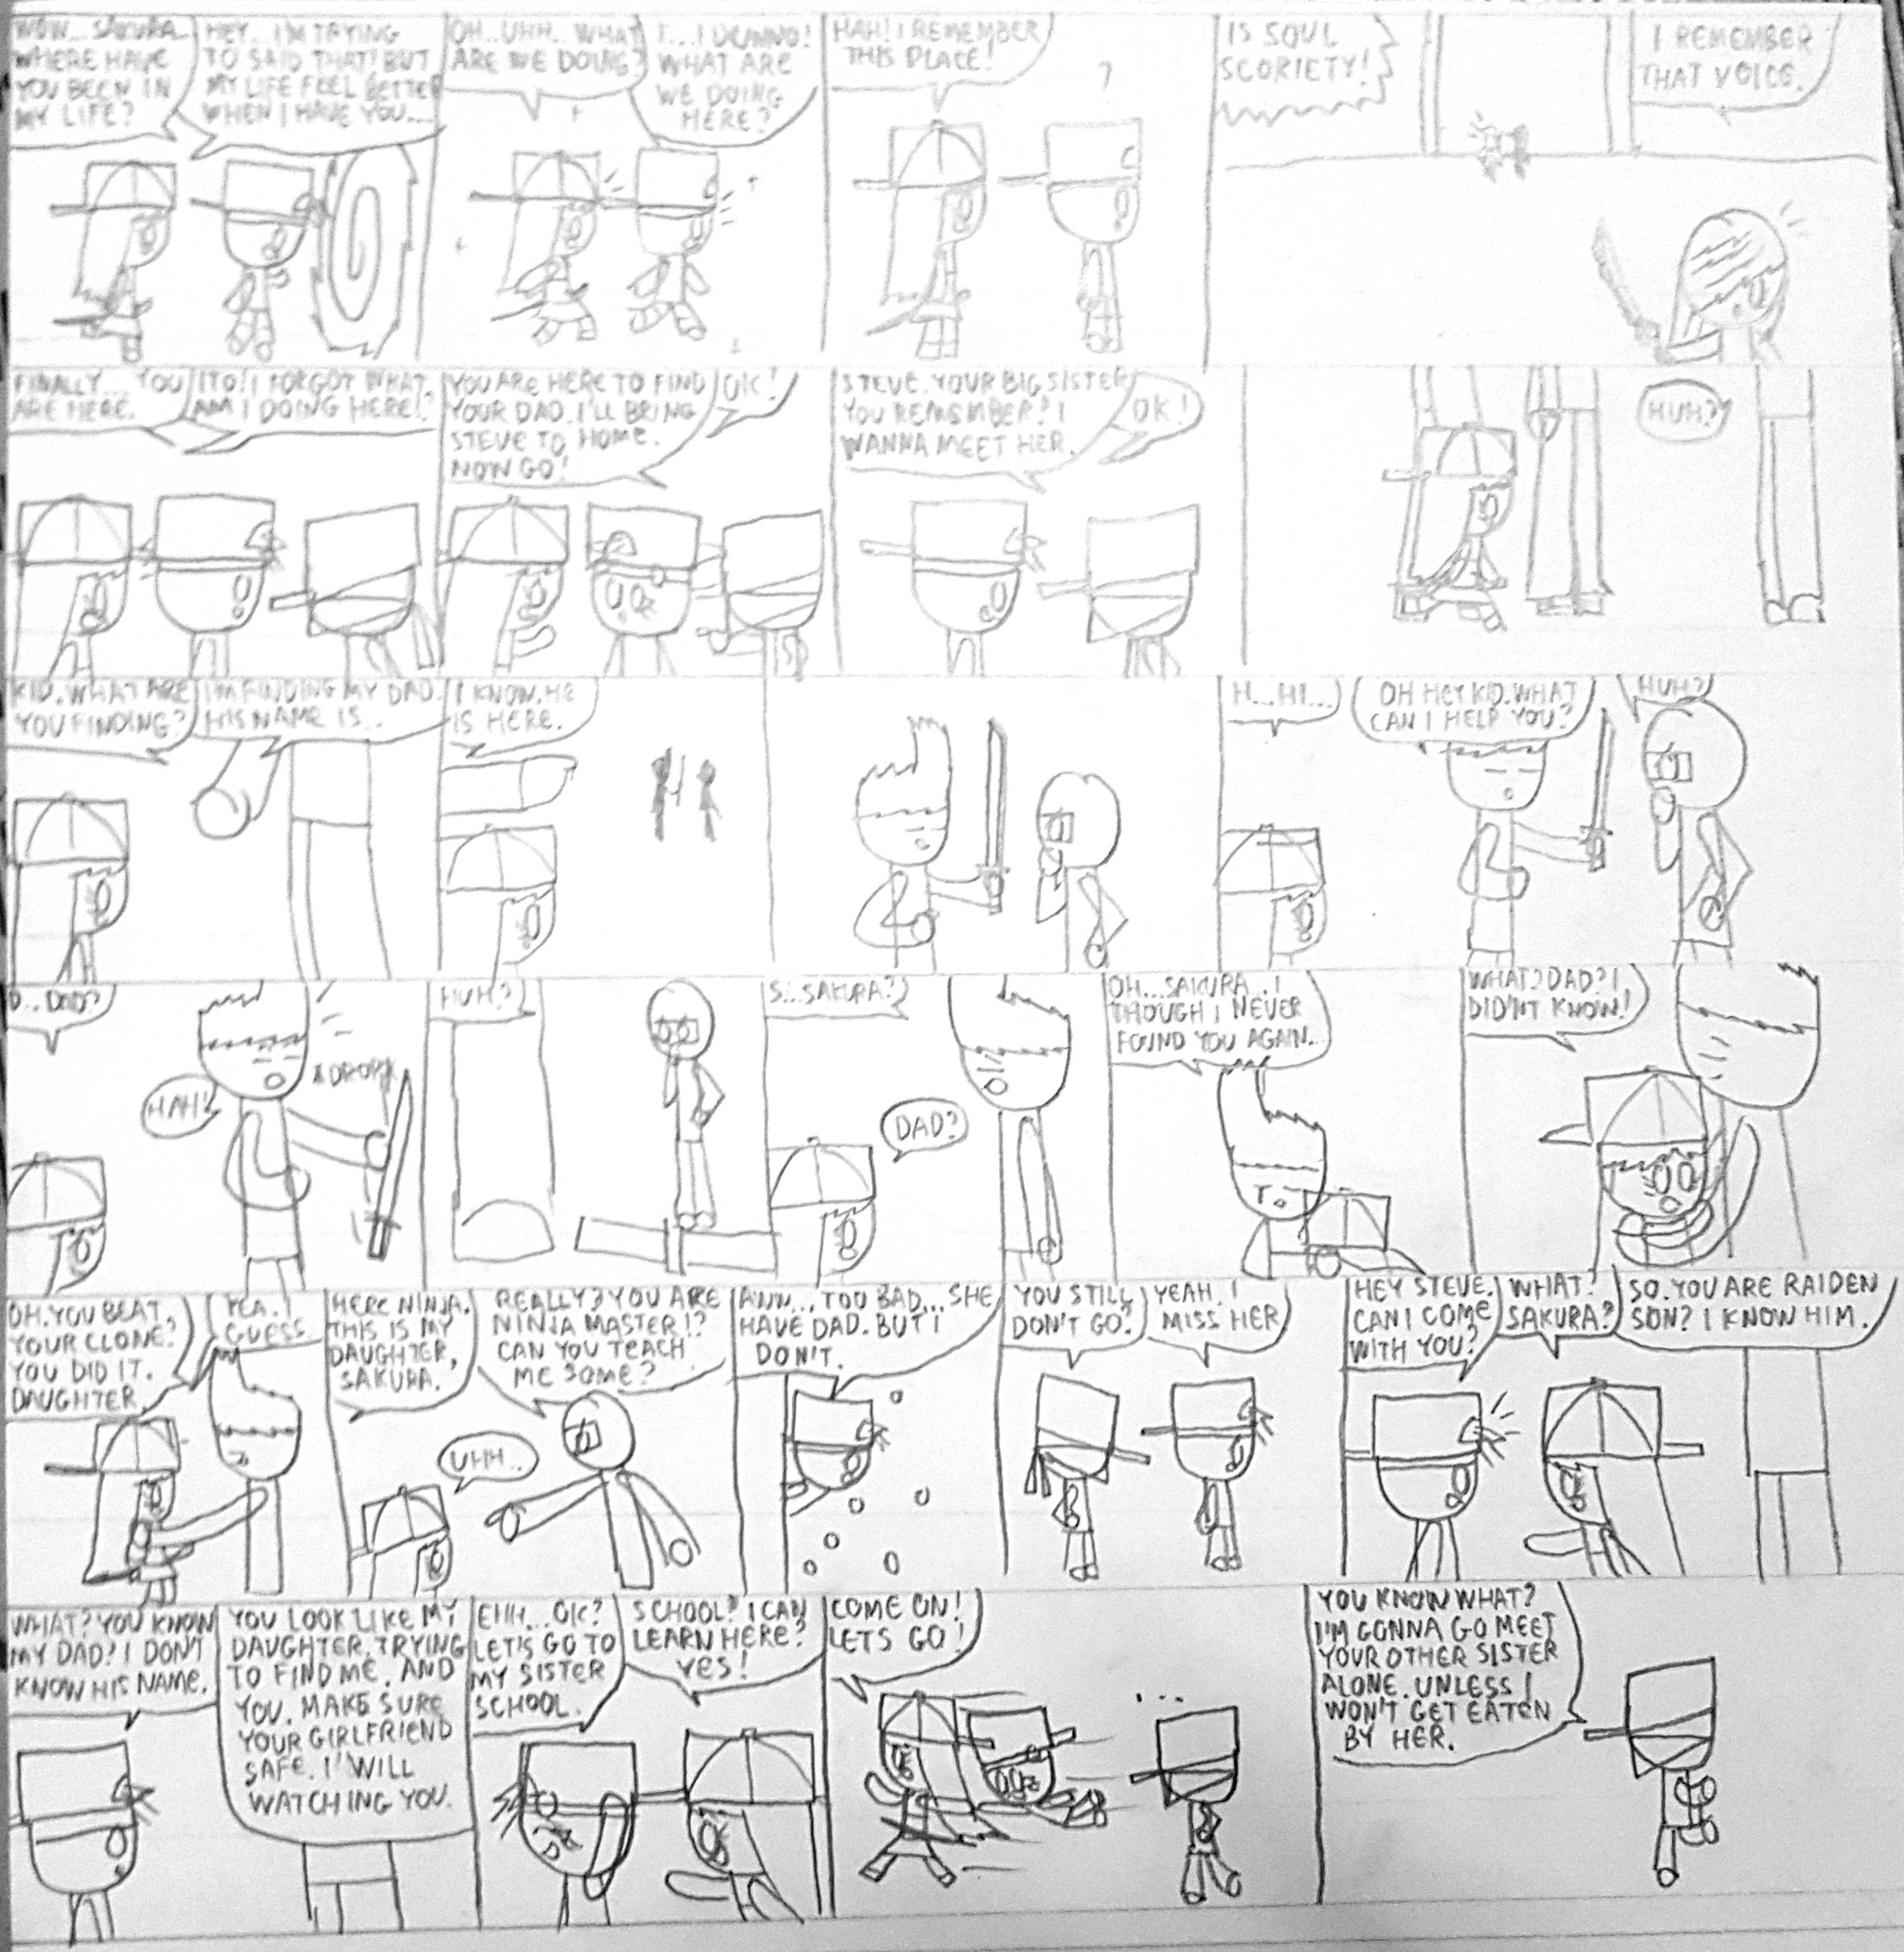 WOW... SAKURA.
WHERE HAVE
YOU BEEN IN
MY LIFE?
HEY... I'M TRYING
TO SAID THAT! BUT
MY LIFE FEEL BETTER
WHEN I HAVE YOU...
OH..UHH.. WHAT
ARE WE DOING?
I... I DUNNO!
WHAT ARE
WE DOING
HERE?
HAH! I REMEMBER
THIS PLACE!
?
IS SOUL
SCORIETY!
I REMEMBER
THAT VOICE.
FINALLY... YOU
ARE HERE.
ITO! I FORGOT WHAT
AM I DOING HERE!?
YOU ARE HERE TO FIND
YOUR DAD. I'LL BRING
STEVE TO HOME.
NOW GO!
OK!
STEVE. YOUR BIG SISTER
YOU REMEMBER? I
WANNA MEET HER.
OK!
HUH?
KID. WHAT ARE
YOU FINDING?
I'M FINDING MY DAD.
HIS NAME IS..
I KNOW. HE
IS HERE.
H...HI...
OH HEY KID. WHAT
CAN I HELP YOU?
HUH?
D... DAD?
HAH!
*DROP*
HUH?
S...SAKURA?
DAD?
OH...SAKURA. I
THOUGH I NEVER
FOUND YOU AGAIN...
WHAT? DAD? I
DID'NT KNOW!
OH. YOU BEAT
YOUR CLONE?
YOU DID IT.
DAUGHTER.
YEA. I
GUESS
HERE NINJA.
THIS IS MY
DAUGHTER,
SAKURA.
UHH..
REALLY? YOU ARE
NINJA MASTER!?
CAN YOU TEACH
ME SOME?
AWW... TOO BAD... SHE
HAVE DAD. BUT I
DON'T.
YOU STILL
DON'T GO?
YEAH. I
MISS HER
HEY STEVE.
CAN I COME
WITH YOU?
WHAT?
SAKURA?
SO. YOU ARE RAIDEN
SON? I KNOW HIM.
WHAT? YOU KNOW
MY DAD? I DON'T
KNOW HIS NAME.
YOU LOOK LIKE MY
DAUGHTER, TRYING
TO FIND ME. AND
YOU. MAKE SURE
YOUR GIRLFRIEND
SAFE. I WILL
WATCHING YOU.
EHH... OK?
LET'S GO TO
MY SISTER
SCHOOL.
SCHOOL? I CAN
LEARN HERE?
YES!
COME ON!
LETS GO!
...
YOU KNOW WHAT?
I'M GONNA GO MEET
YOUR OTHER SISTER
ALONE. UNLESS I
WON'T GET EATEN
BY HER.